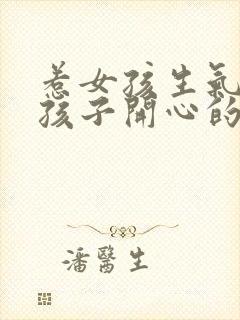 惹女孩生氣
孩子開心的
潘醫生